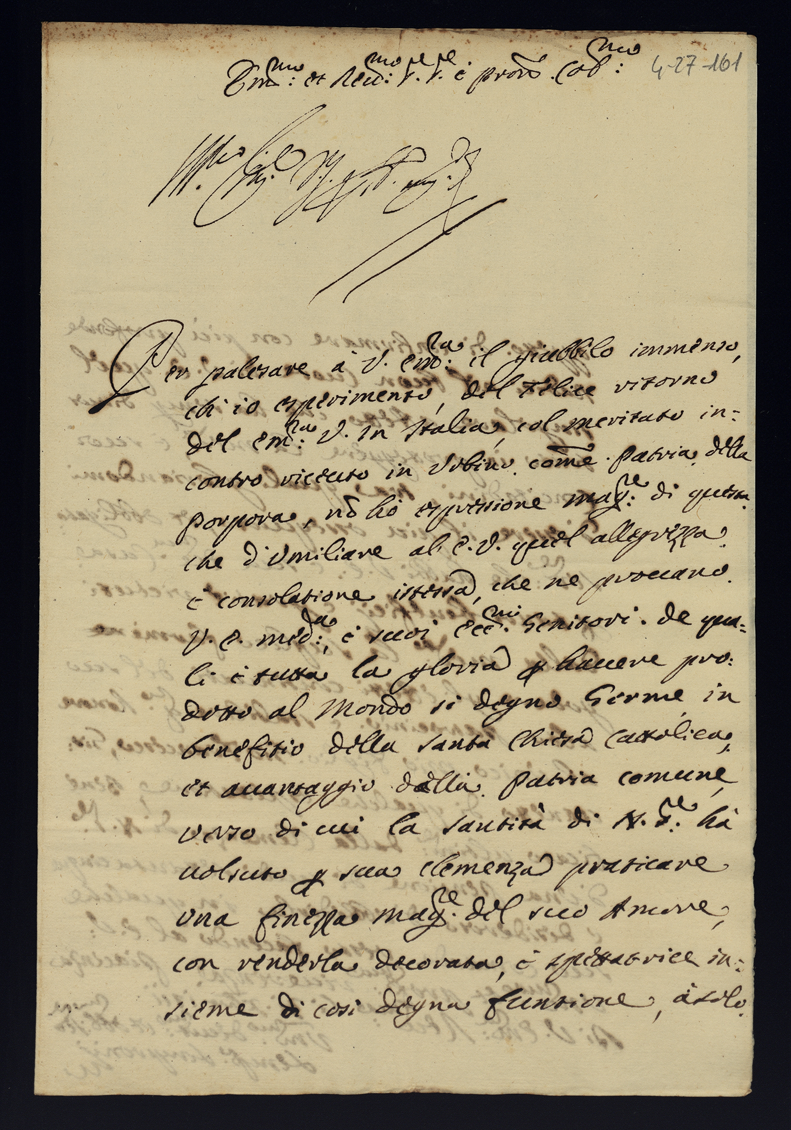 Em.mo: et Rev.mo: S.re S.re è pron̄ Col.mo:
4-27-161
Per palesare à V. Em.za: il giubbilo immenso,
ch'io esperimento, del felice ritorno
del Em.za: V. in Italia, col meritato in=
contro riceuto in Urbino come Patria della
Porpora, nō hò espressione mag.re di questa
che d'Umiliare al E.V. quel allegrezza
è consolatione istessa, che ne provano
V.E. med.ma:, è suoi Ecc.mi Genitori. de qua=
li è tutta la gloria p̱ havere pro:
dotto al Mondo si degno Germe, in
benefitio della Santa Chiesa Cattolica,
et avantaggio della Patria comune,
verso di cui la santità di N.S.re: hà
volsuto p̱ sua clemenza praticare
una finezza mag.re: del suo Amore,
con renderla decorata, è spettatrice in=
sieme di così degna funtione, à solo